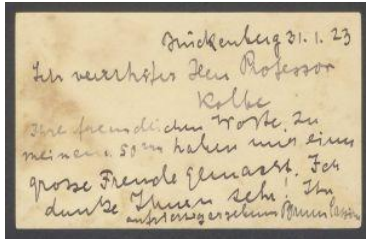 Brückenberg 31.1.23
Sehr verehrter Herr Professor
Kolbe
Ihre freundlichen Worte zu
meinem 50ten haben mir eine
grosse Freude gemacht. Ich
danke Ihnen sehr! Ihr
Bruno Cassirer